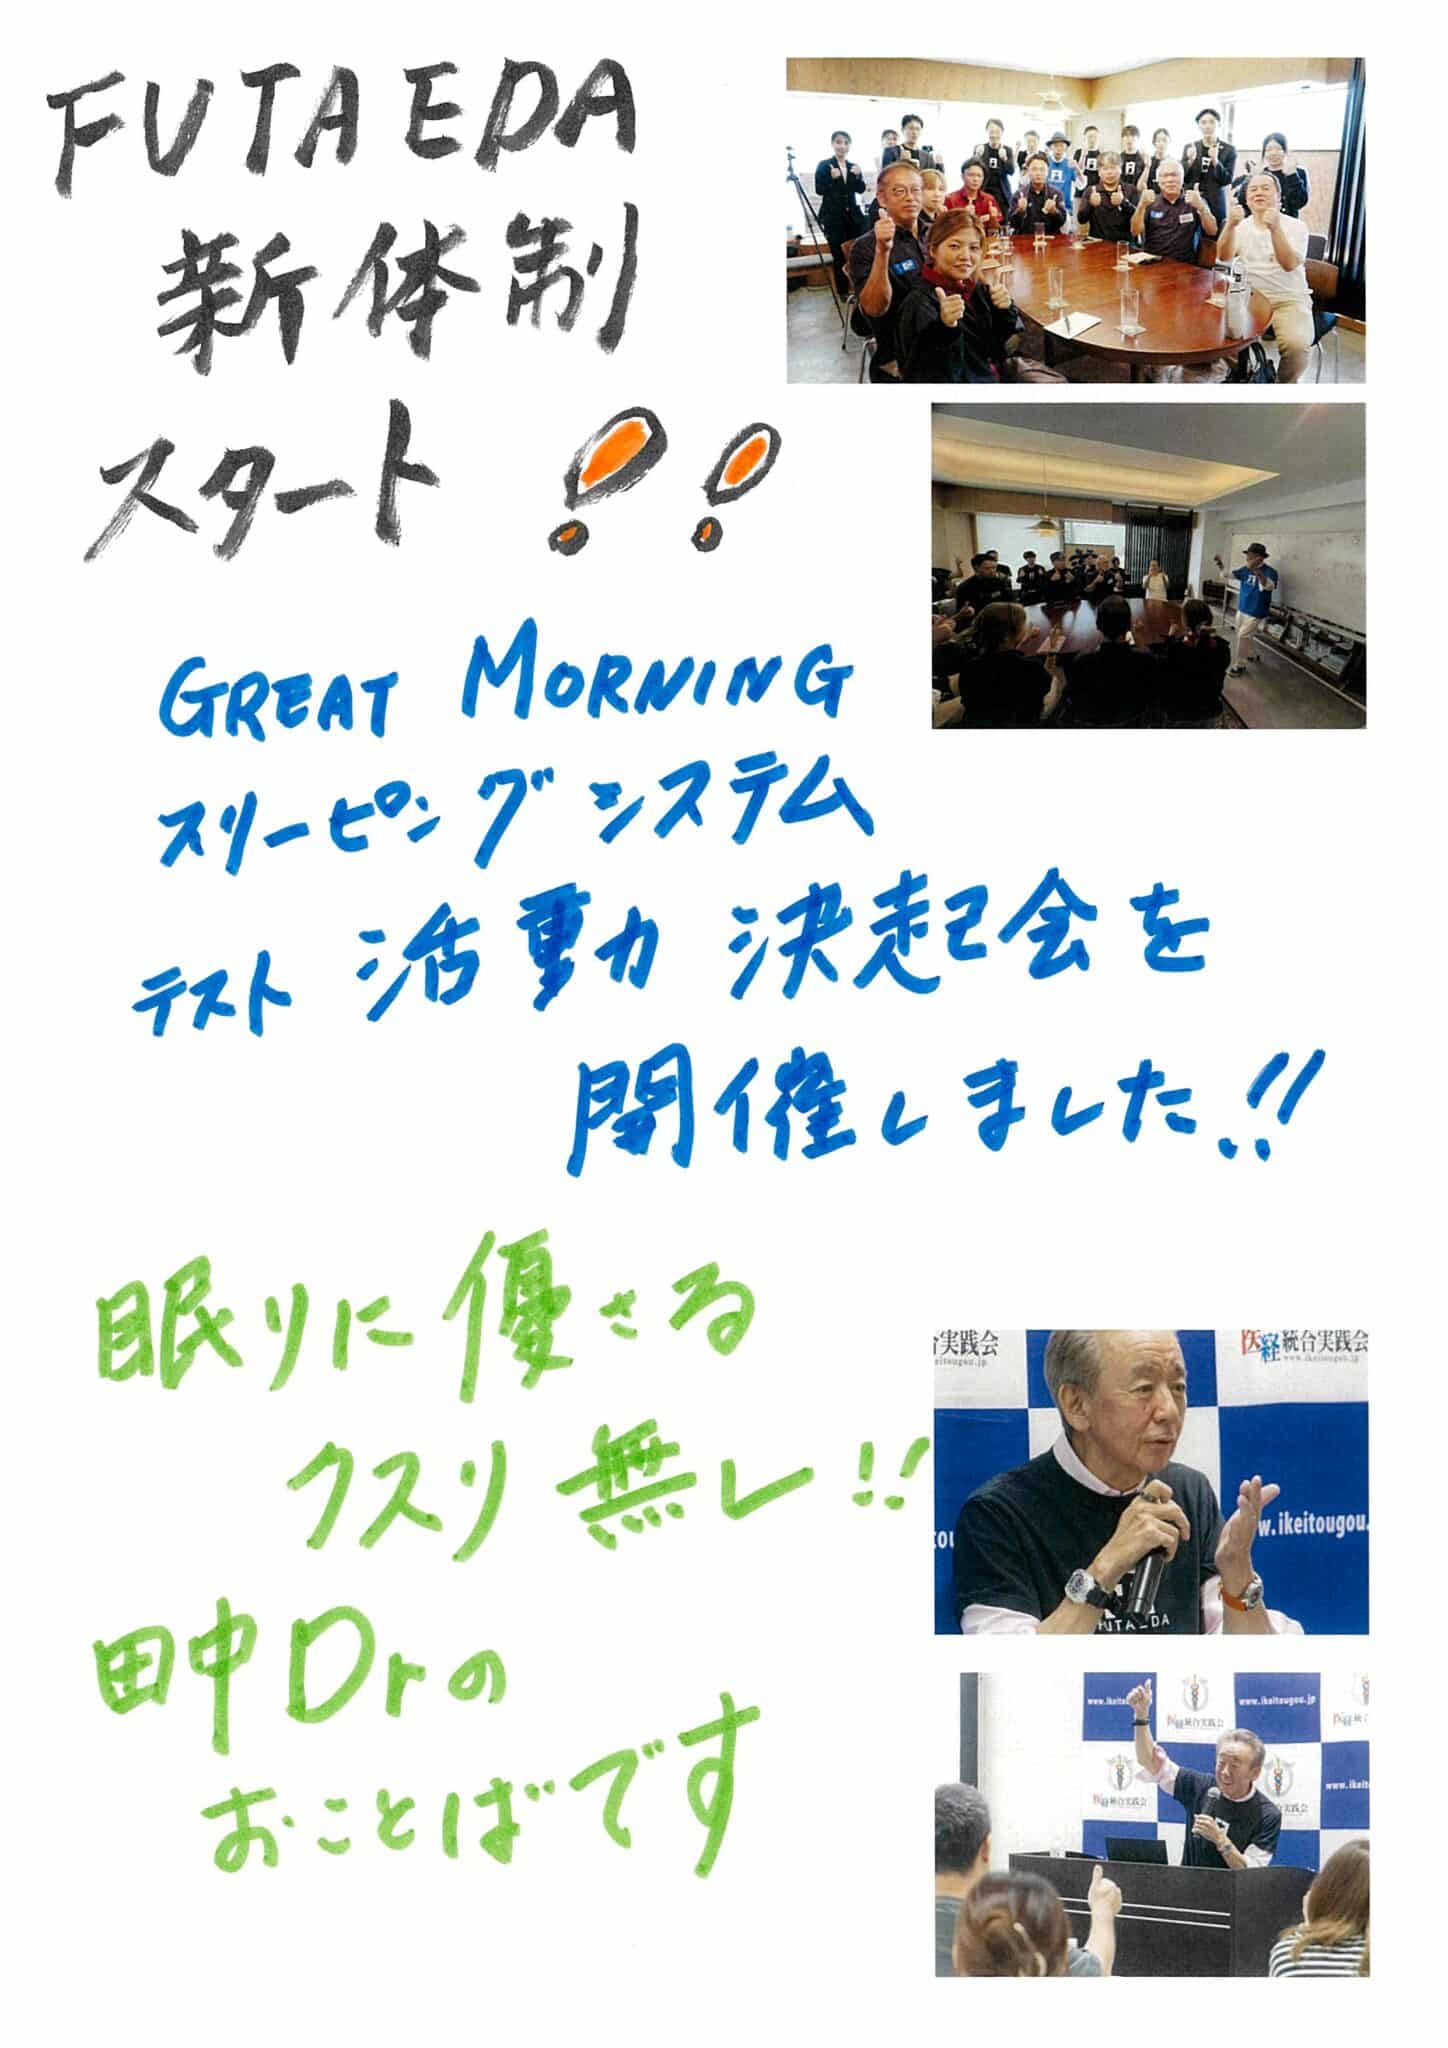 FUTAEDA
新体制
スタート!!
GREAT MORNING
スリーピングシステム
テスト 活動 決起会を
開催しました!!
眠りに優さる
クスリ無し!!
田中Drの
おことばです
台実践会
eitougou.jp
医経統合実践会
www.ikeitougou.jp
ww.ikeitougou.
FUTAEDA
www.ikeitou
www.ikeitougou.jp
医経統合実践会
医経統合実践会
www.ikei